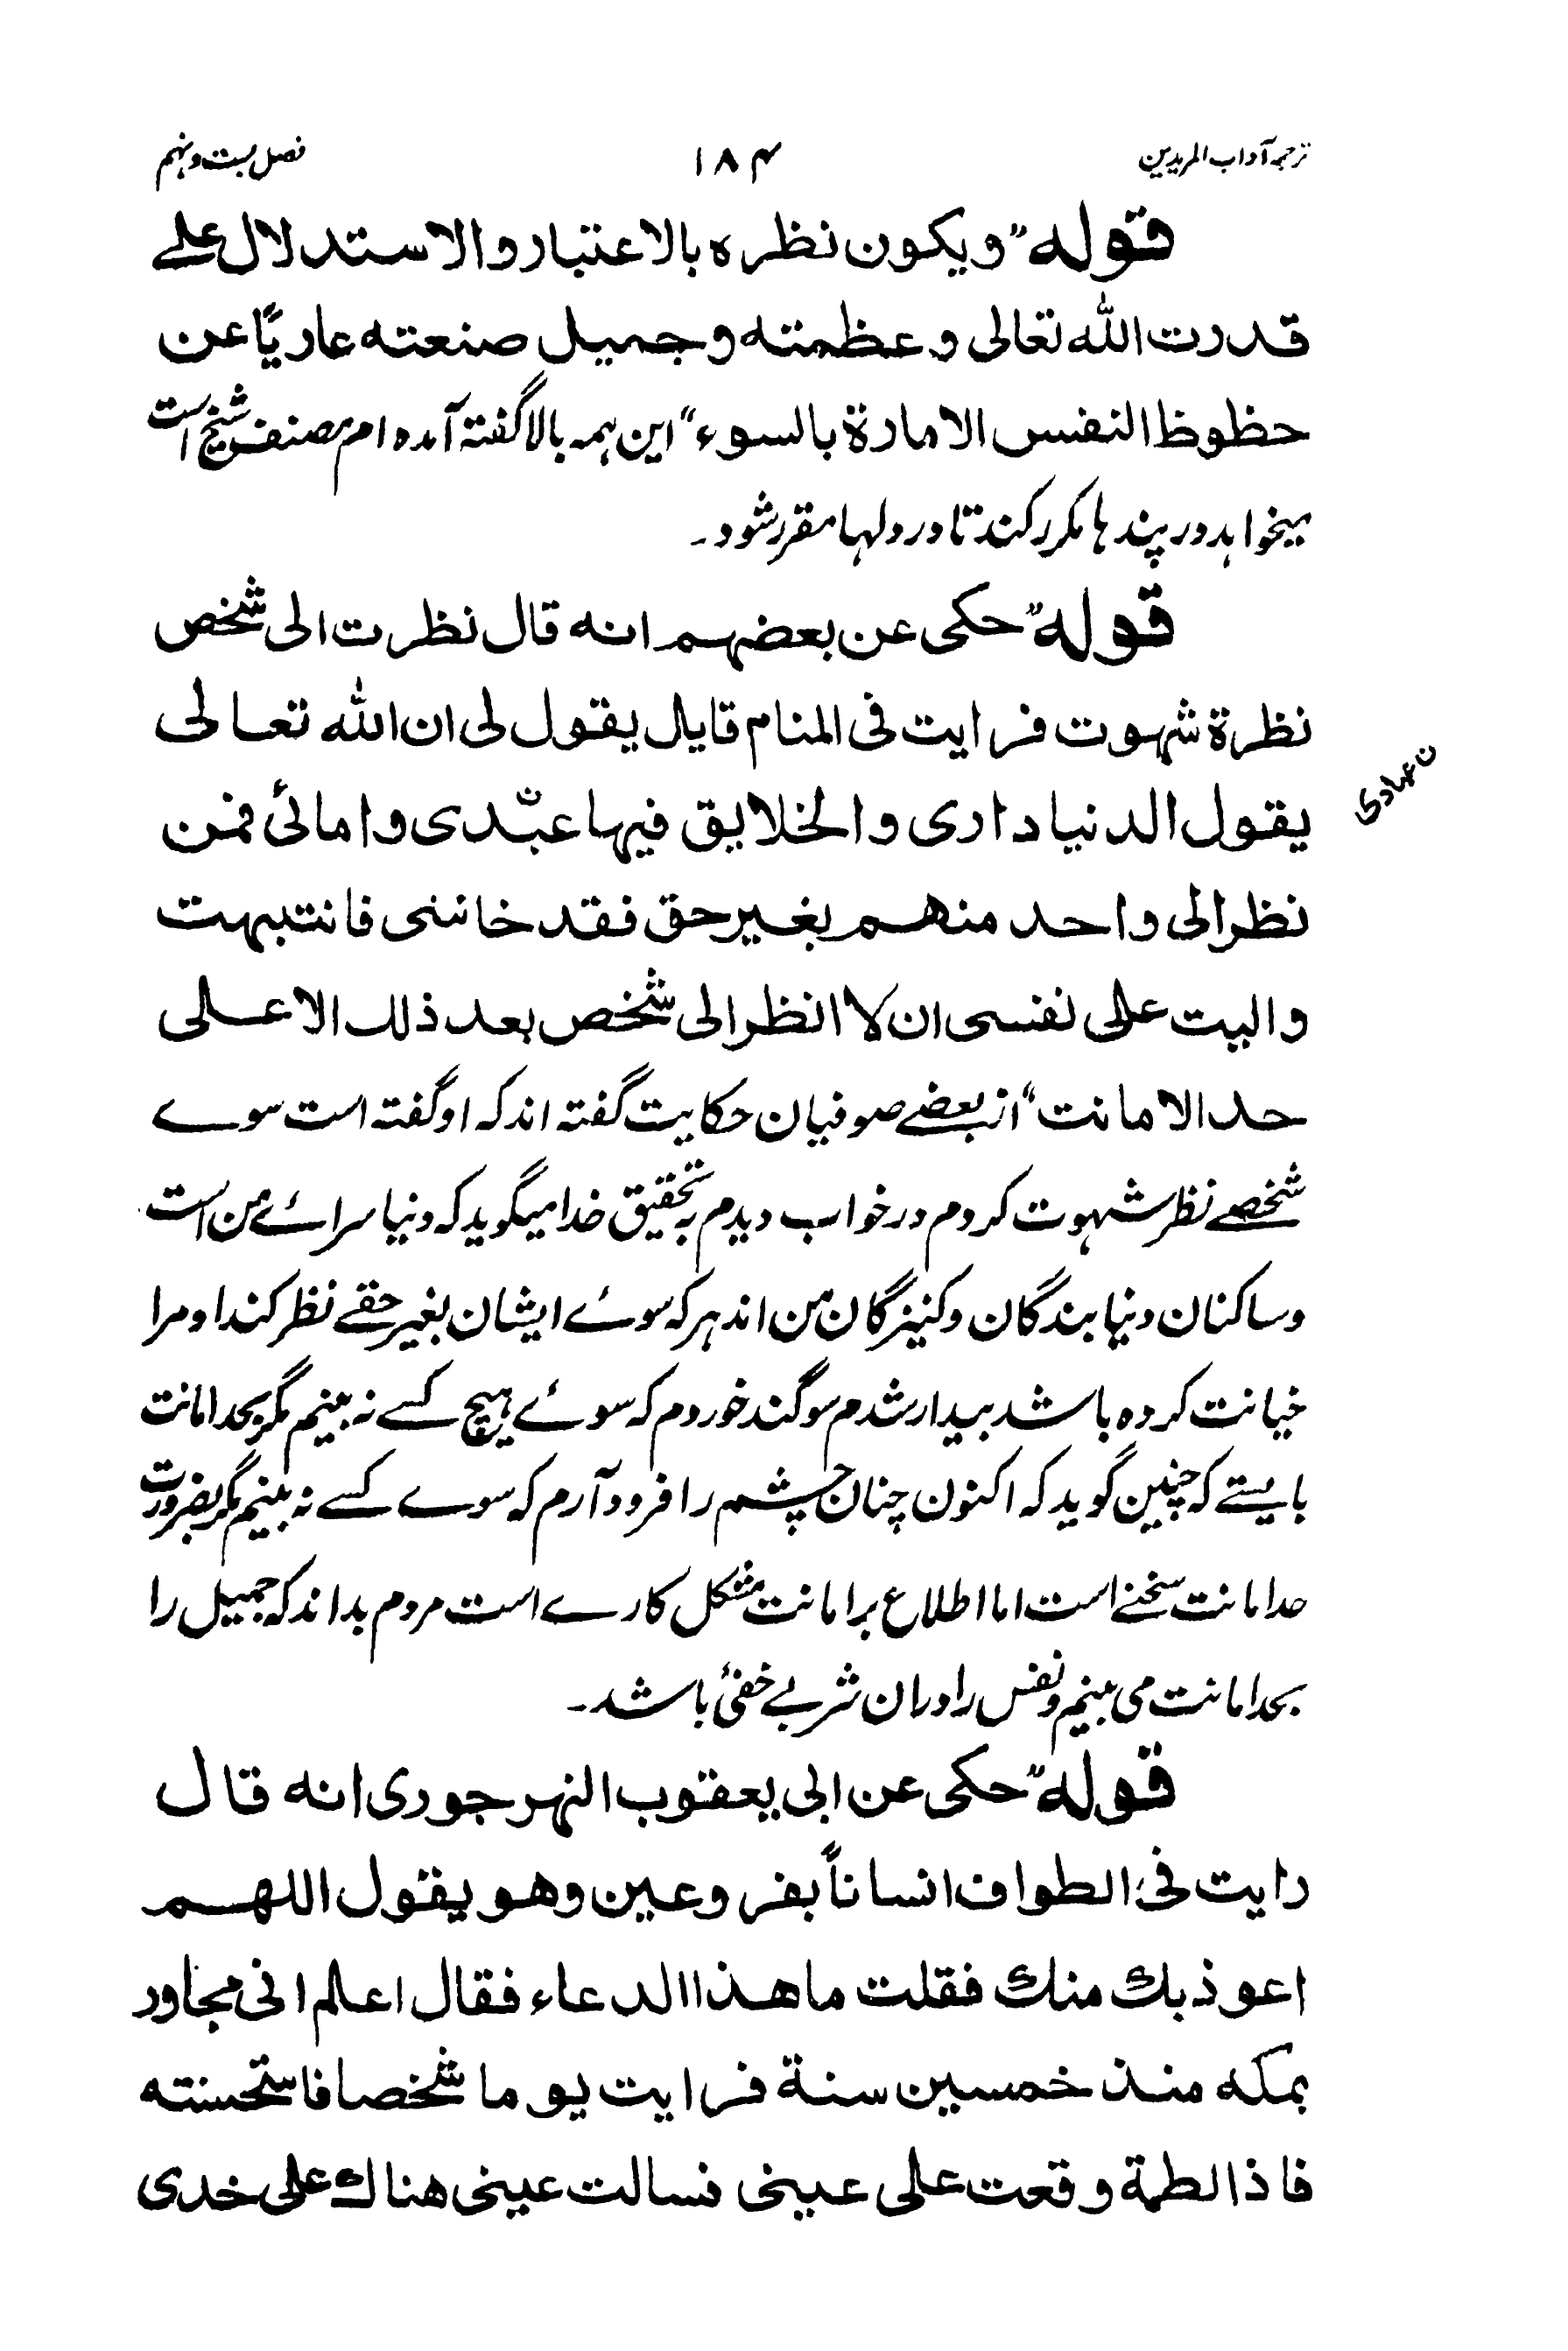 ترجمہ آداب المریدین ۱۸۴ فصل بست و نہم
قوله "ویکون نظره بالاعتبار والاستدلال علے
قدرت الله تعالی و عظمته و جمیل صنعته عاریًا عن
حظوظ النفس الامارة بالسوء" این ہمہ بالا گفتہ آمدہ ام مصنف شیخ است
میخواہد در پندہا مکرر کند تا در دلہا مقرر شود۔
قوله "حکی عن بعضهم انه قال نظرت الی شخص
نظرة شهوت فرایت فی المنام قایل یقول لی ان الله تعالی
یقول الدنیا داری والخلایق فیها عبدیؔ و امائی فمن
ن عبادی
نظر الی واحد منهم بغیر حق فقد خاننی فانتبهت
والیت علی نفسی ان لا انظر الی شخص بعد ذلك الا علی
حد الامانت" از بعضے صوفیان حکایت گفتہ اند کہ او گفتہ است سوے
شخصے نظر شہوت کردم در خواب دیدم بہ تحقیق خدا میگوید کہ دنیا سرائے من است
و ساکنان دنیا بندگان و کنیزگان من اند ہر کہ سوئے ایشان بغیر حقے نظر کند او مرا
خیانت کردہ باشد بیدار شدم سوگند خوردم کہ سوئے ہیچ کسے نہ بینم مگر بحد امانت
بایستے کہ چنین گوید کہ اکنون چنان چشم را فرود آرم کہ سوے کسے نہ بینم مگر بضرورت
حد امانت سخنے است اما اطلاع بر امانت مشکل کارے است مردم بداند کہ جمیل را
بحد امانت می بینم و نفس را دران شربے خفئ باشد۔
قوله "حکی عن ابی یعقوب النهرجوری انه قال
رایت فی الطواف انساناً بفرد عین وهو یقول اللهم
اعوذ بك منك فقلت ما هذا الدعاء فقال اعلم انی مجاور
بمکه منذ خمسین سنة فرایت یوما شخصا فاستحسنته
فاذا لطمة وقعت علی عینی فسالت عینی هناك علی خدی